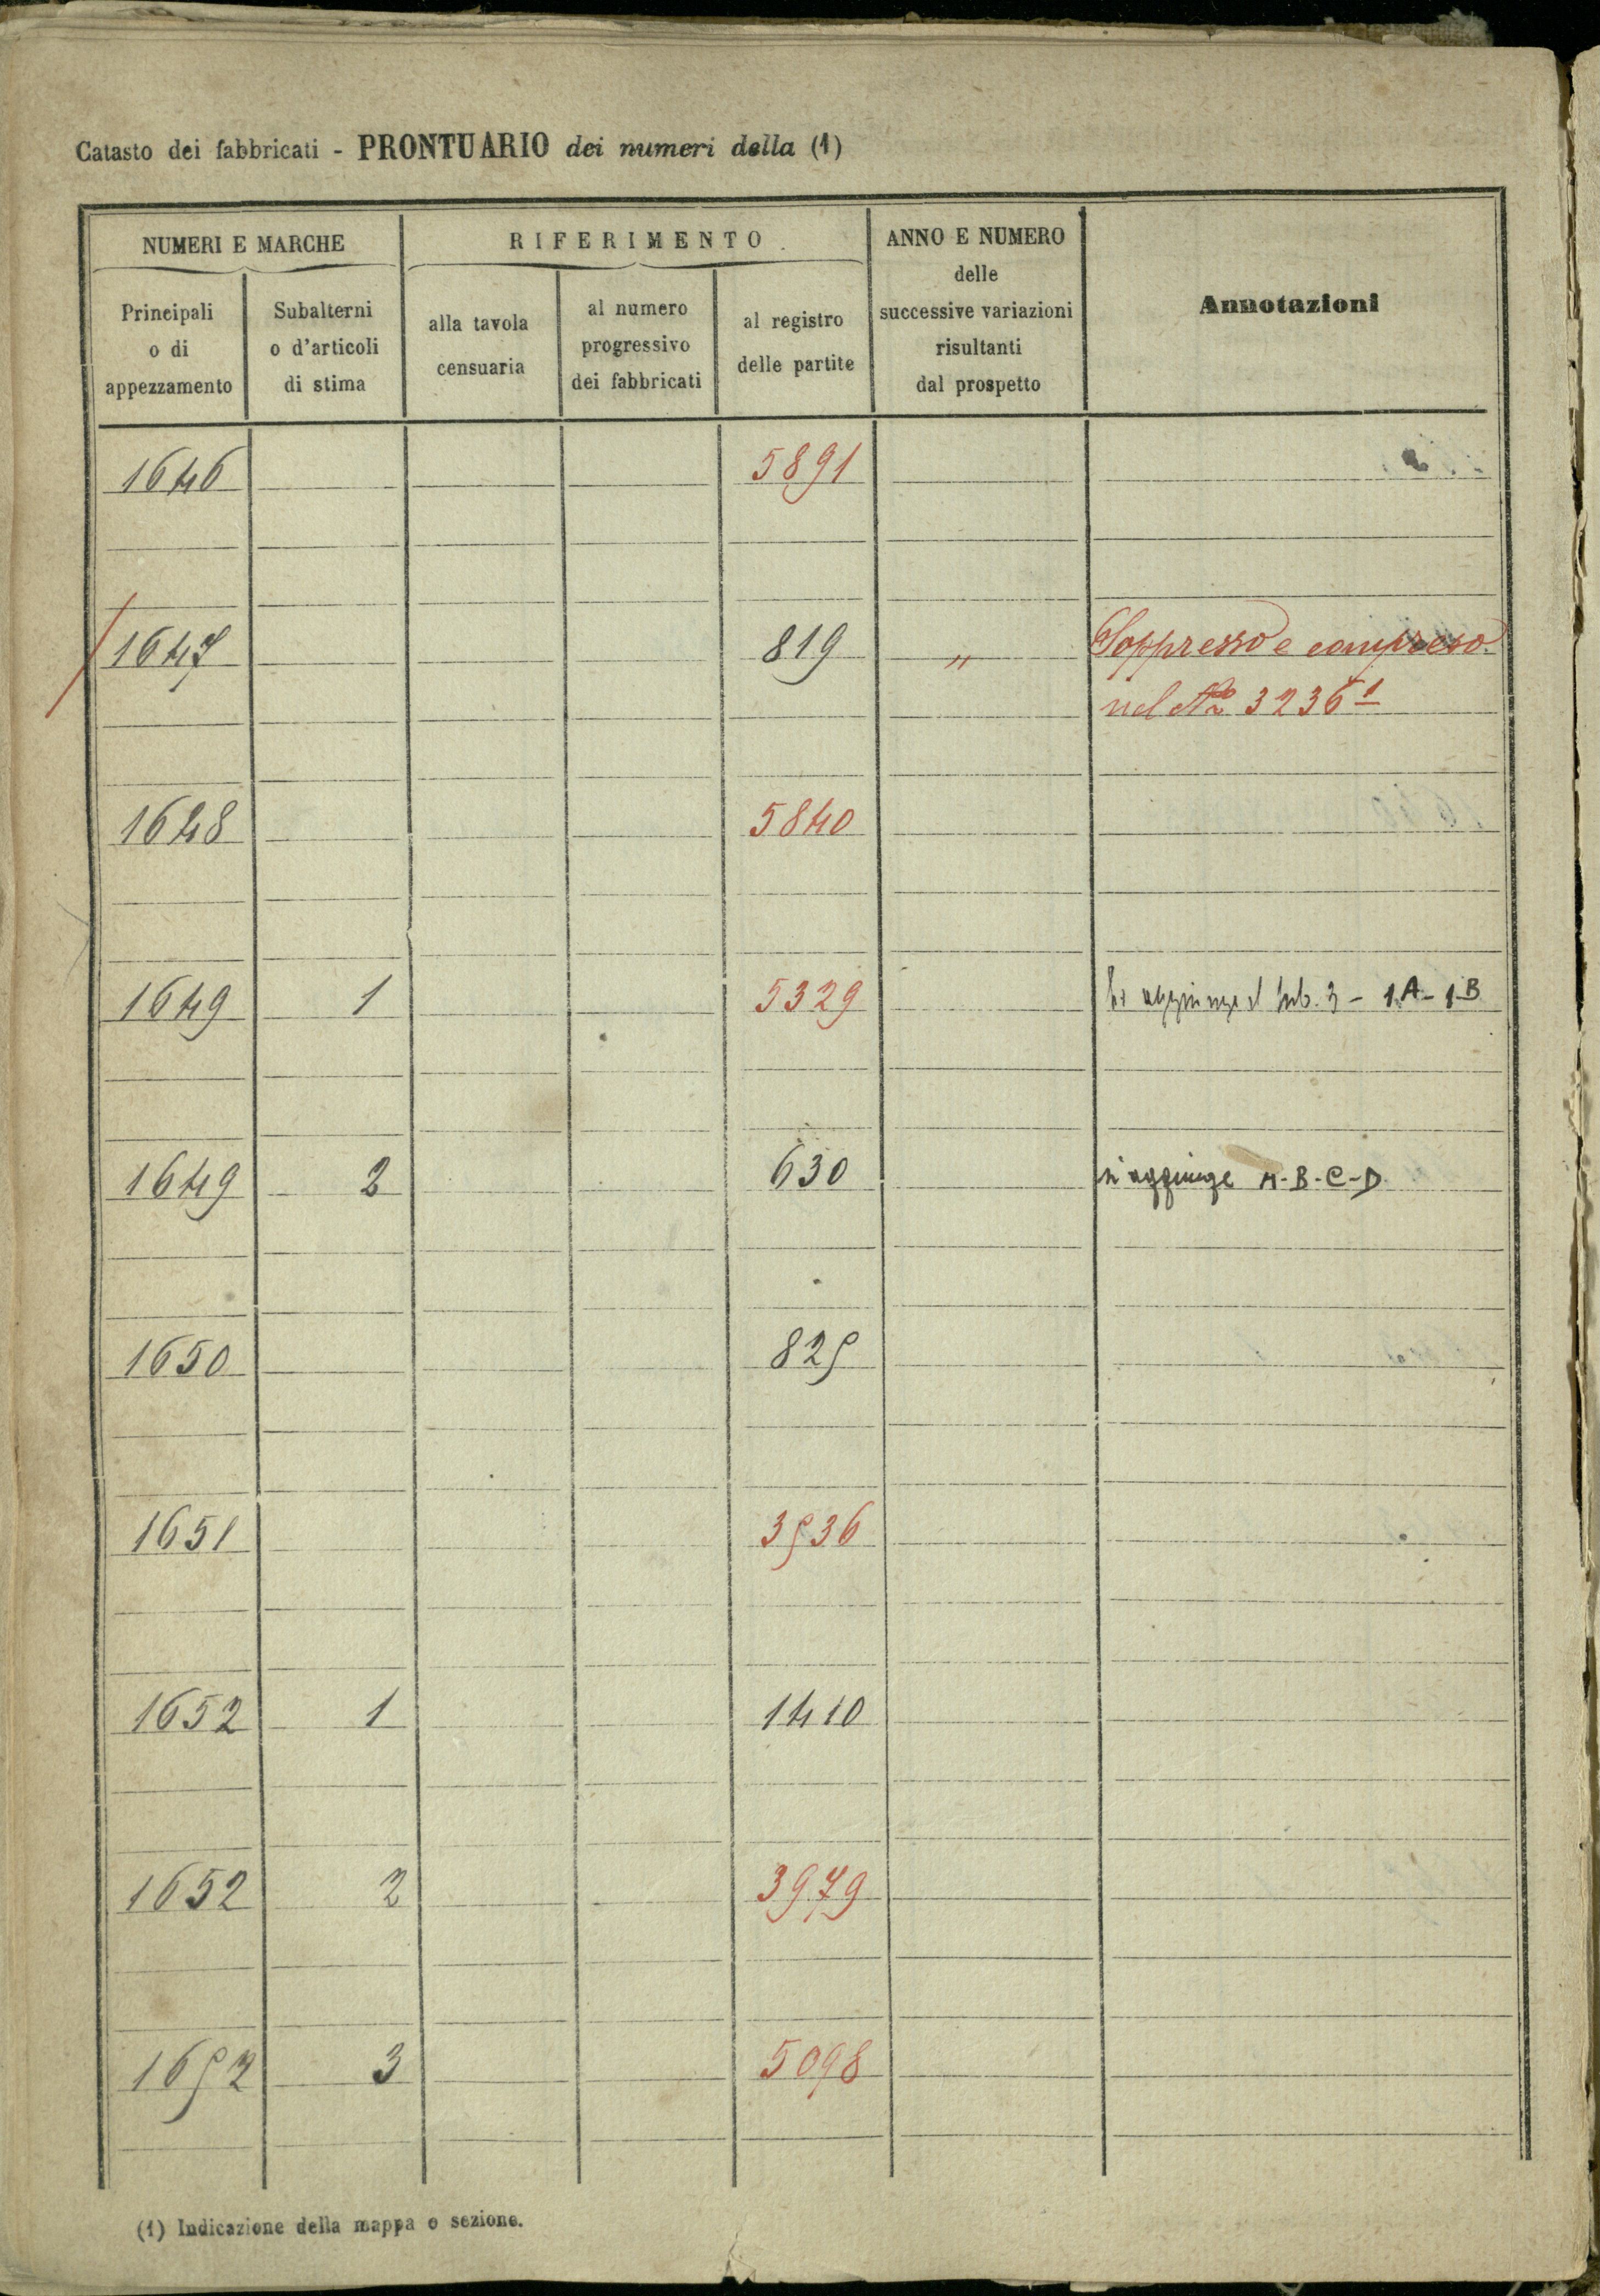 Catasto dei fabbricati - PRONTUARIO dei numeri della (1)
NUMERI E MARCHE
RIFERIMENTO
ANNO E NUMERO
delle
successive variazioni
risultanti
dal prospetto
Annotazioni
Principali
o di
appezzamento
Subalterni
o d'articoli
di stima
alla tavola
censuaria
al numero
progressivo
dei fabbricati
al registro
delle partite
1646 5891
1647 819 " Soppresso e compreso
nel No 3236 1
1648 5840
1649 1 5329 Si aggiunge il sub. 3 - 1A - 1B
1649 2 630 si aggiunge A-B-C-D
1650 825
1651 3536
1652 1 1410
1652 2 3979
1652 3 5098
(1) Indicazione della mappa o sezione.